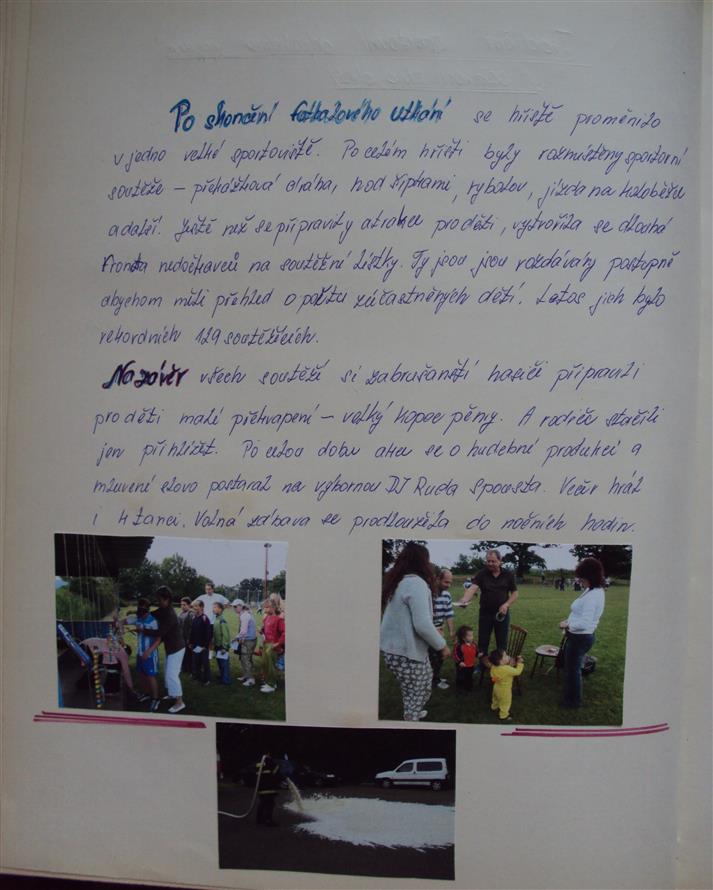 Po skončení fotbalového utkání se hřiště proměnilo
v jedno velké sportoviště. Po celém hřišti byly rozmístěny sportovní
soutěže – překážková dráha, hod šipkami, rybolov, jízda na koloběžce
a další. Ještě než se připravily atrakce pro děti, vytvořila se dlouhá
fronta nedočkavců na soutěžní lístky. Ty jsou jsou rozdávány postupně
abychom měli přehled o počtu zúčastněných dětí. Letos jich bylo
rekordních 129 soutěžících.
Na závěr všech soutěží si zabrušanští hasiči připravili
pro děti malé překvapení – velký kopec pěny. A rodiče stačili
jen přihlížet. Po celou dobu akce se o hudební produkci a
mluvené slovo postaral na výbornou DJ Ruda Spousta. Večer hrál
i k tanci. Volná zábava se prodloužila do nočních hodin.